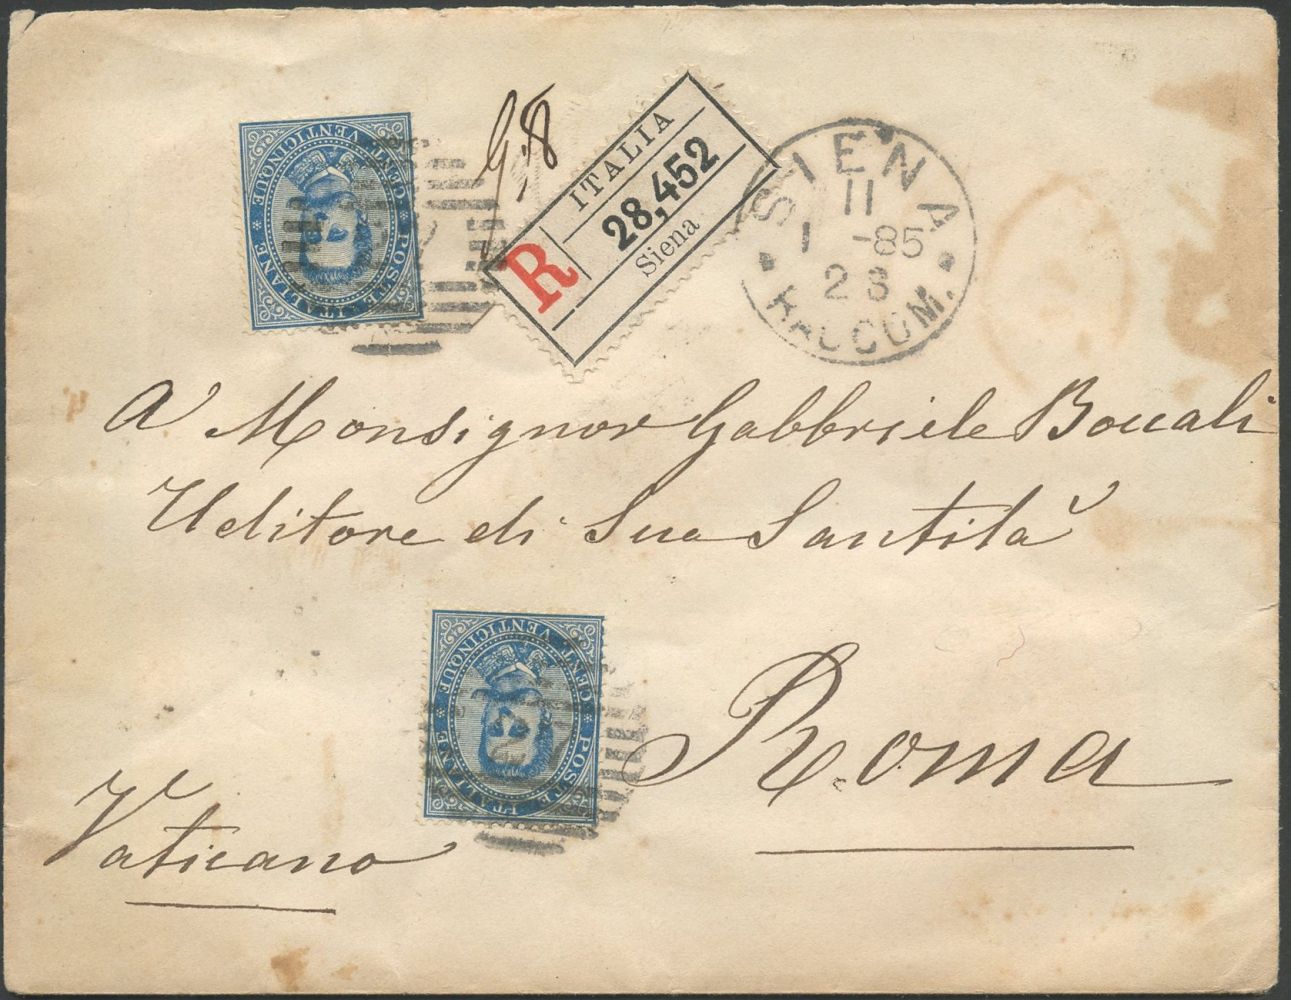 CENT. VENTICINQUE
* POSTE ITALIANE *
g. 8
R
ITALIA
28,452
Siena
SIENA
11
1 -85
23
RACCOM.
A' Monsignor Gabbriele Boccali
Uditore di Sua Santità
CENT. VENTICINQUE
* POSTE ITALIANE *
Roma
Vaticano